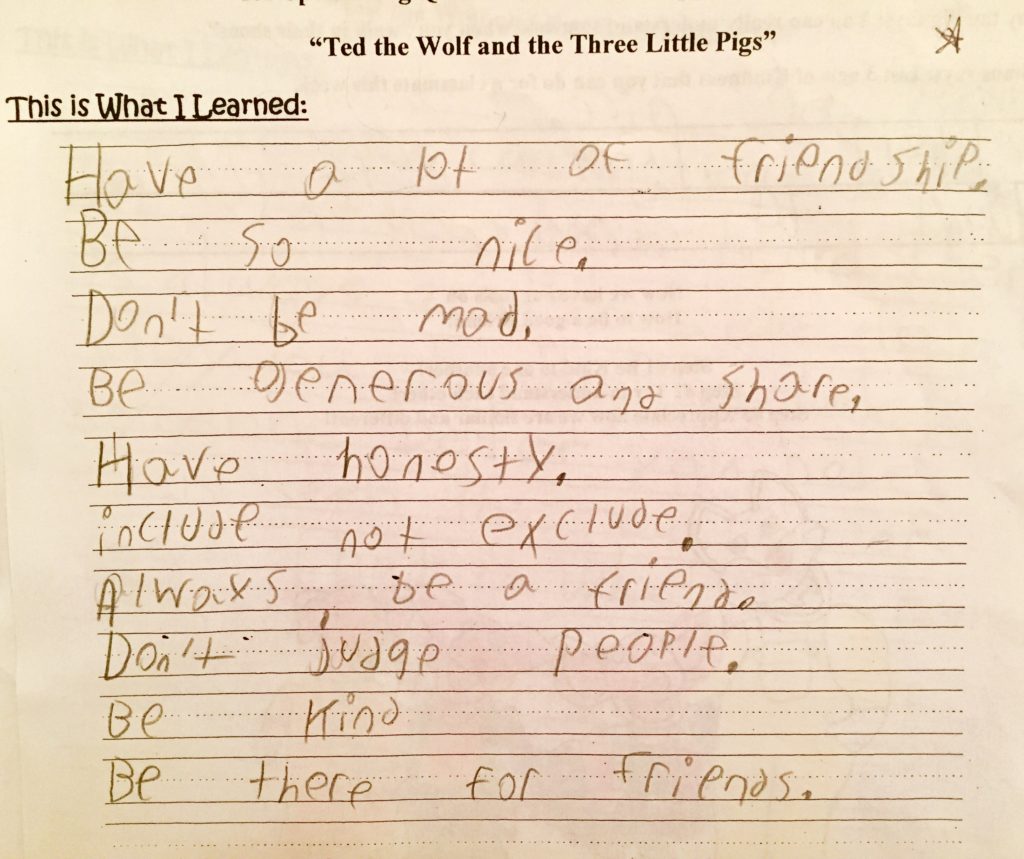 “Ted the Wolf and the Three Little Pigs”
This is What I Learned:
Have a lot of friendship.
Be so nice.
Don't be mad.
Be generous and share.
Have honesty.
include not exclude.
Always be a friend.
Don't judge people.
Be Kind
Be there for friends.